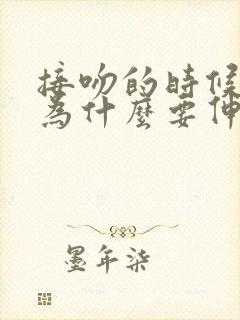 接吻的時候
為什麼要伸
墨年柒